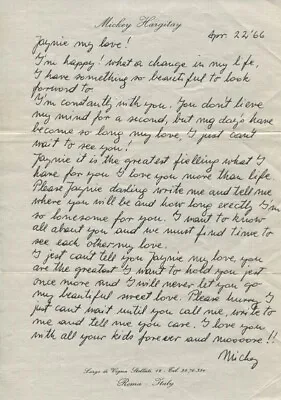 Mickey Hargitay
Apr. 22'66
Jaynie my love!
I'm happy! what a change in my life,
I have something so beautiful to look
forward to.
I'm constantly with you. You don't lieve
my mind for a second, but my day's have
become so long my love, I just can't
wait to see you!
Jaynie it is the greatest fielling what I
have for you I love you more than life.
Please Jaynie darling write me and tell me
where you will be and how long exectly I'm
so lonesome for you. I want to know
all about you and we must find time to
see each other my love.
I just can't tell you Jaynie my love, you
are the greatest. I want to hold you just
once more and I will never let you go
my beautiful sweet love. Please hurry I
just can't wait until you call me, write to
me and tell me you care. I love you
with all your kids forever and moooore!!
Mickey
Largo di Vigna Stelluti, 12 - Tel.
Roma - Italy